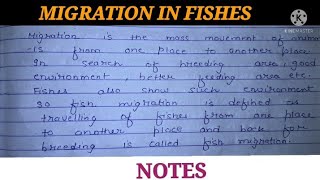 MIGRATION IN FISHES
KINEMASTER
Migration is the mass movement of anim
is from one place to another place
In search of breeding area, good
environment better feeding area etc.
Fishes also show such environment
so fish migration is defined as
travelling of fishes from one place
to another place and back for
breeding is called fish migration.
NOTES